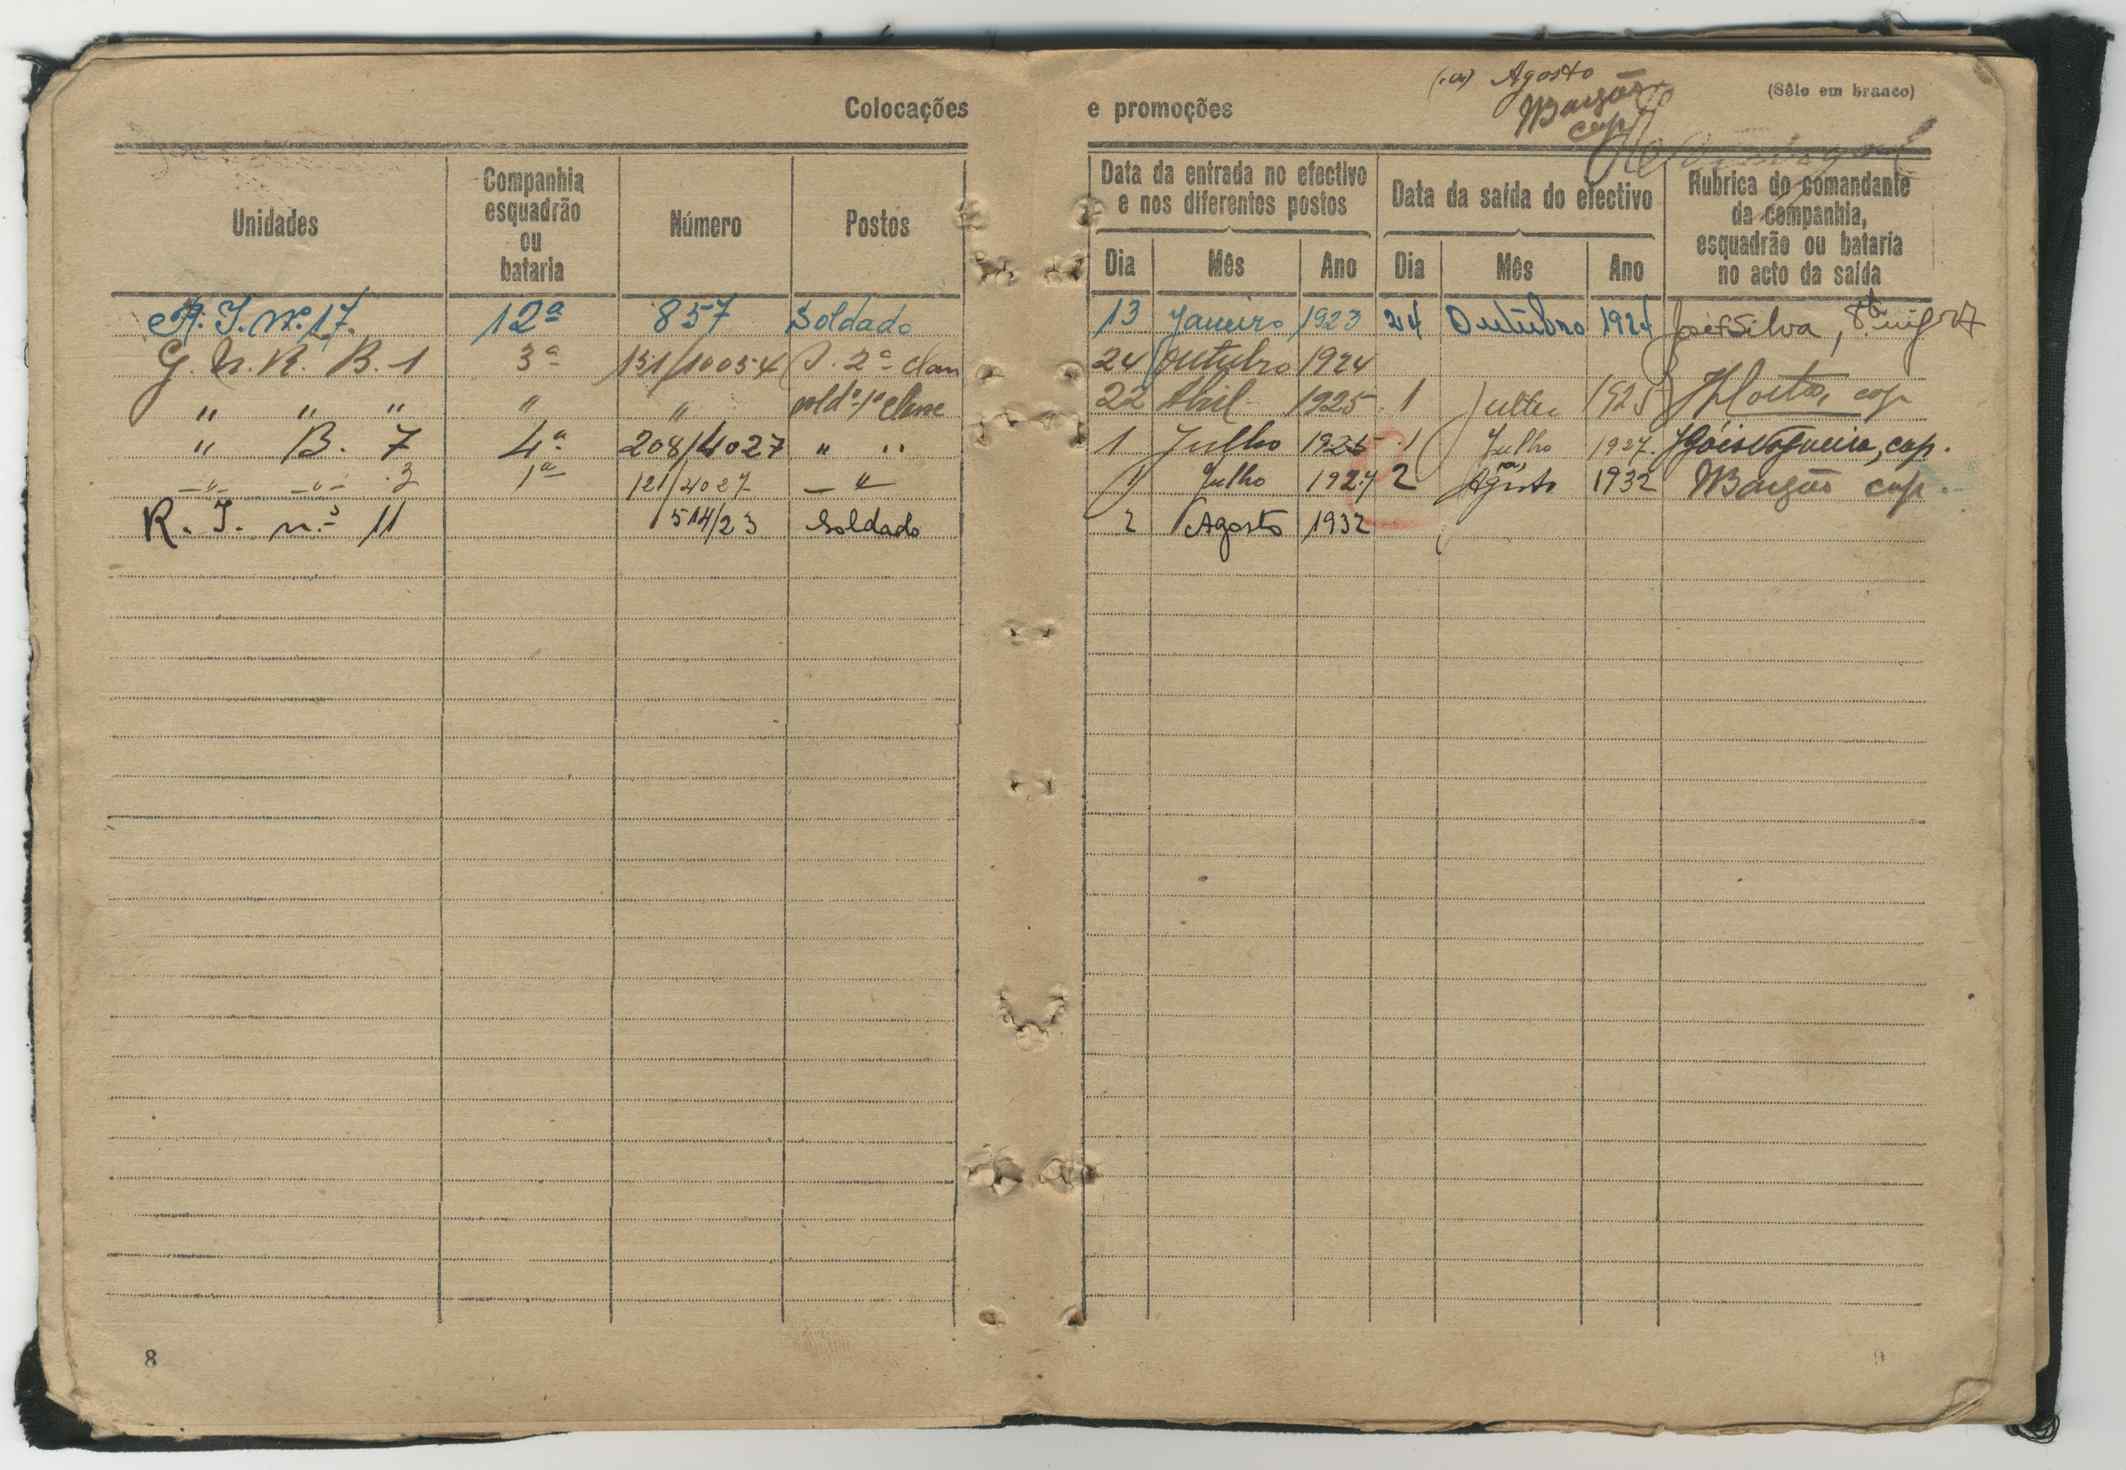 (a) Agosto
Colocações e promoções
(Sêlo em branco)
Barzão
cap
Unidades
Companhia esquadrão ou bataria
Número
Postos
Data da entrada no efectivo e nos diferentes postos
Data da saída do efectivo
Rubrica do comandante da companhia, esquadrão ou bataria no acto da saída
Dia Mês Ano Dia Mês Ano
R. I. nº 17. 12ª 857 Soldado 13 Janeiro 1923 24 Outubro 1924 José Silva,
G. N. R. B. 1 3ª 151/10054 S. 2ª clas 24 Outubro 1924
" " " " " sold. 1ª classe 22 Abril 1925 1 Julho 1925 Costa, cap
" B. 7 4ª 208/4027 " " 1 Julho 1925 1 Julho 1927 Góis Nogueira, cap.
" " 3 1ª 121/4027 " 1 Julho 1927 2 (a) Agosto 1932 cap.
R. I. n.º 11 514/23 Soldado 2 Agosto 1932
8
9